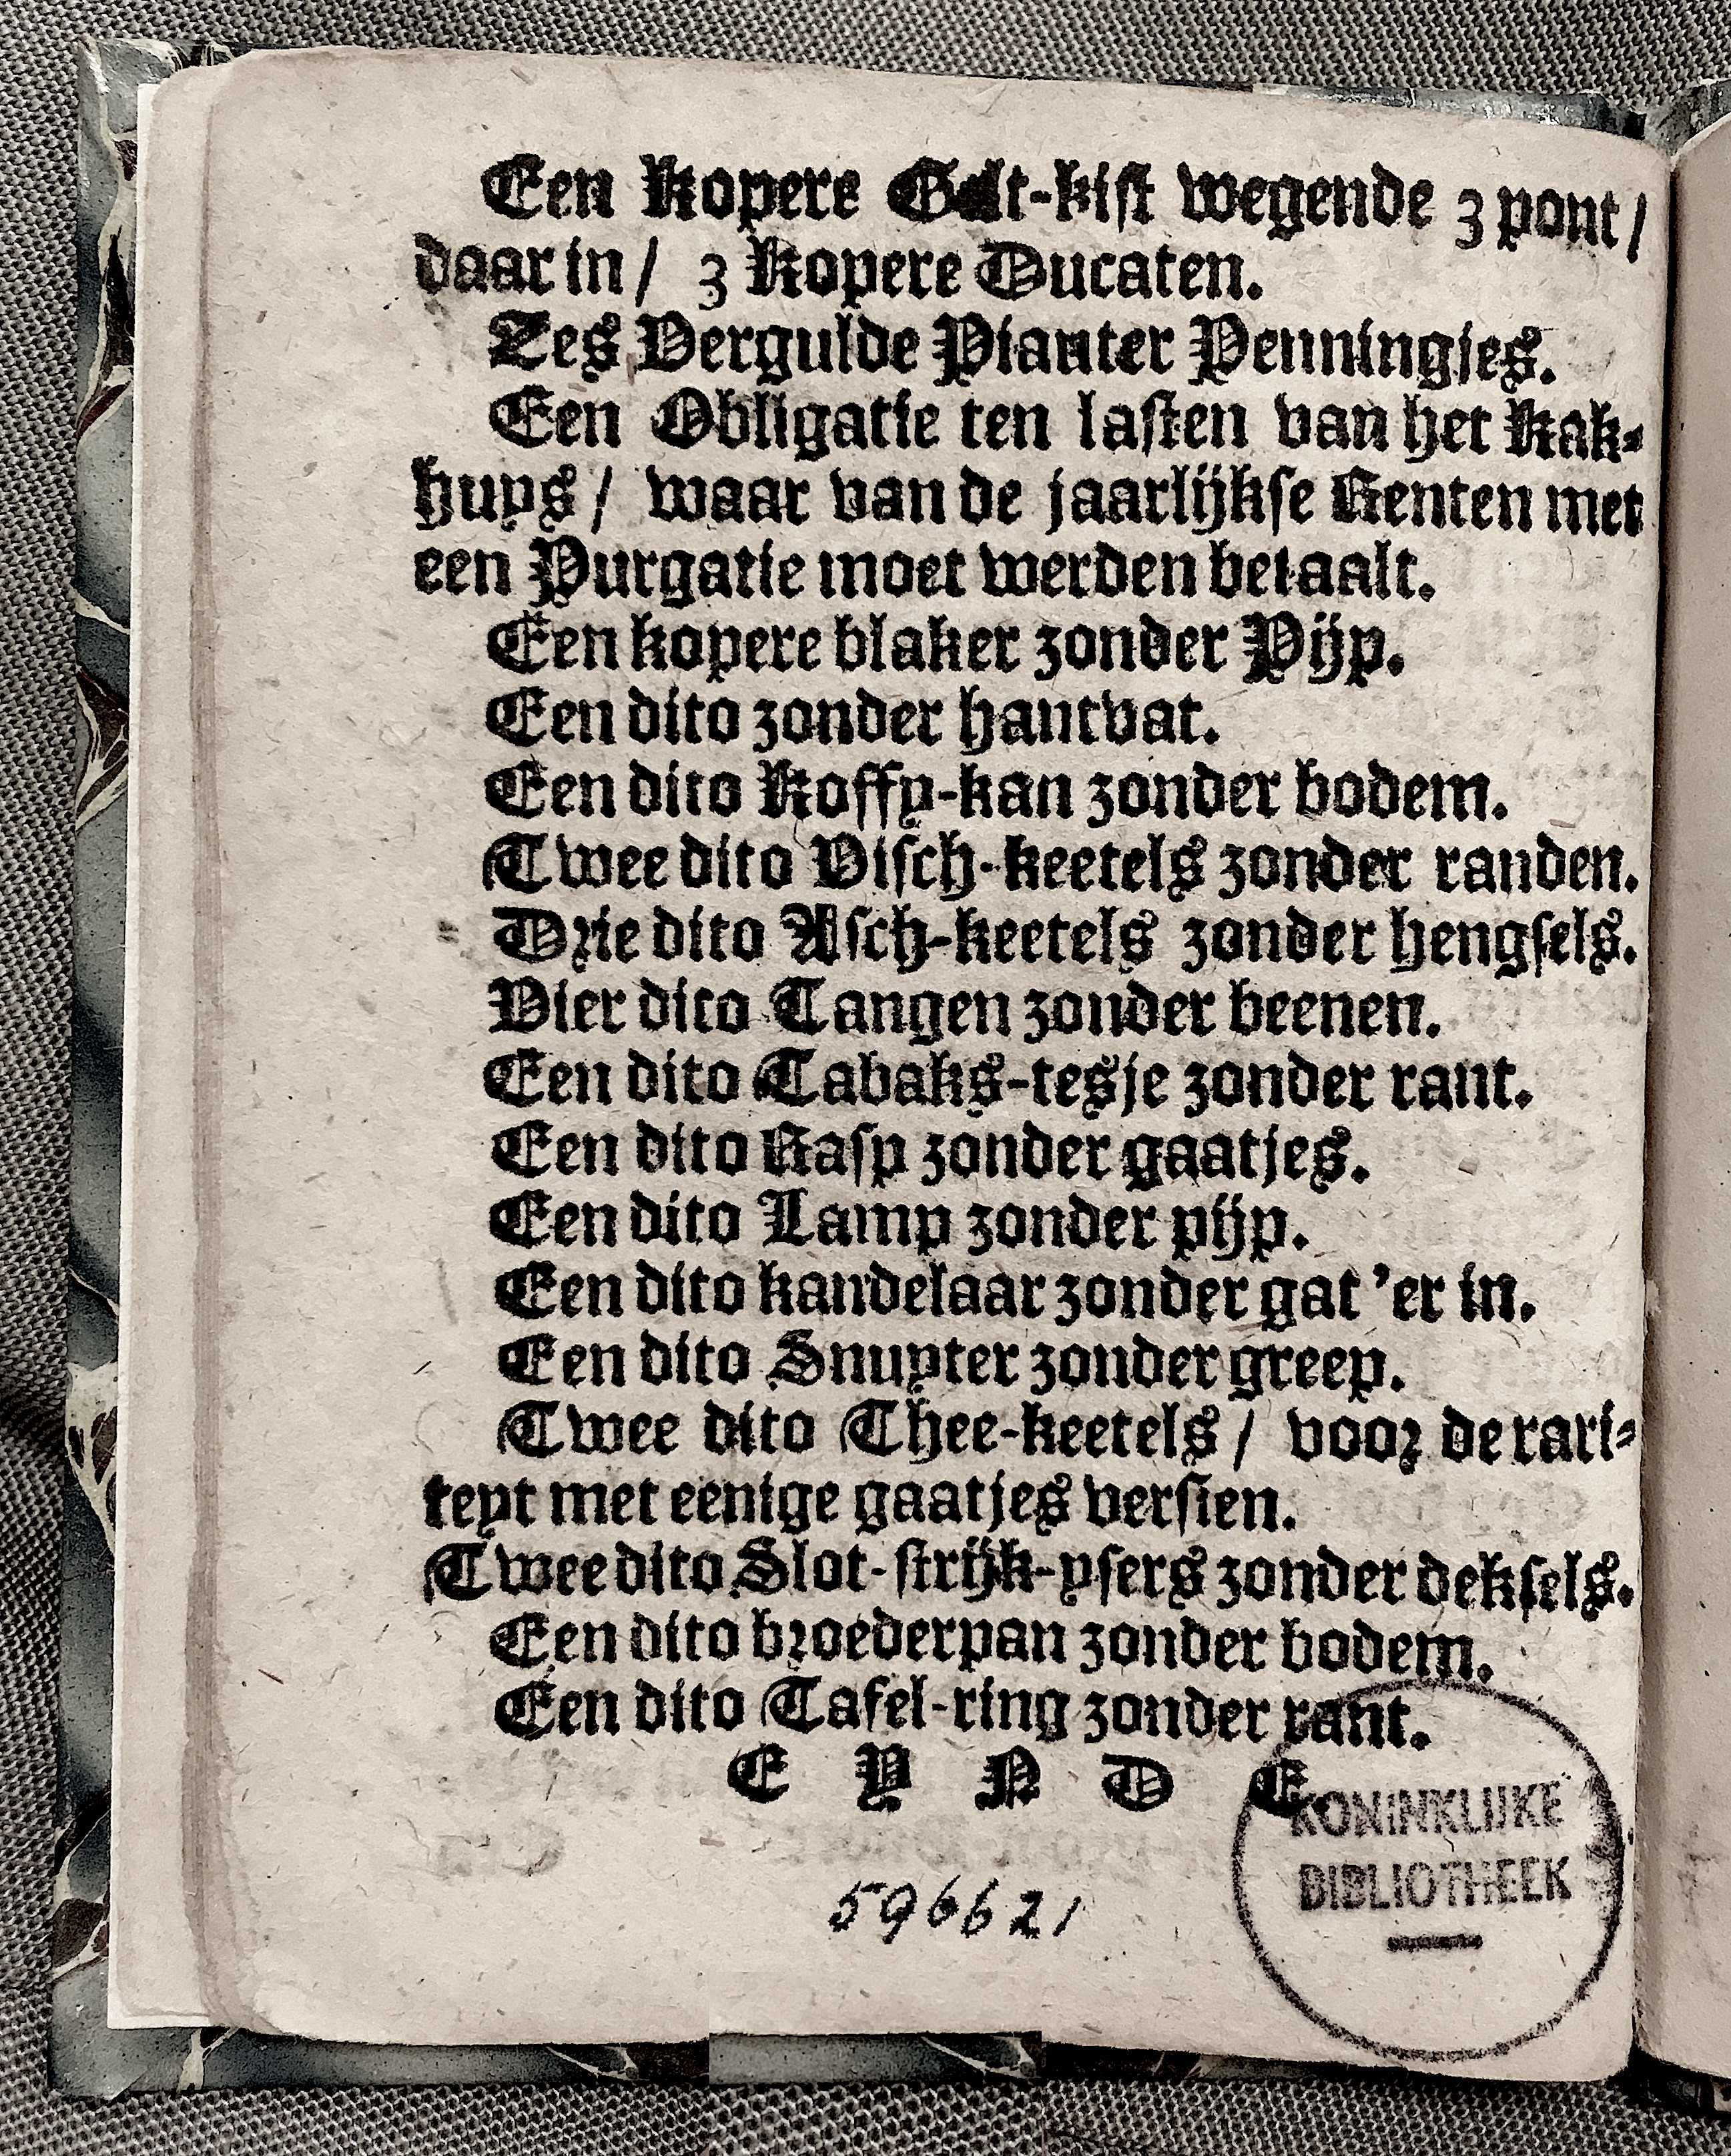 Een kopere Gelt-kist wegende 3 pont /
daar in / 3 kopere Ducaten.
Zes Vergulde Pianter Penningjes.
Een Obligatie ten lasten van het Kak-
huys / waar van de jaarlijkse Renten met
een Purgatie moet werden betaalt.
Een kopere blaker zonder Pijp.
Een dito zonder hantvat.
Een dito Koffy-kan zonder bodem.
Twee dito Visch-keetels zonder randen.
Drie dito Asch-keetels zonder hengsels.
Vier dito Tangen zonder beenen.
Een dito Tabaks-tesje zonder rant.
Een dito Rasp zonder gaatjes.
Een dito Lamp zonder pijp.
Een dito kandelaar zonder gat 'er in.
Een dito Snuyter zonder greep.
Twee dito Thee-keetels / voor de rari-
teyt met eenige gaatjes versien.
Twee dito Slot-strijk-ysers zonder deksels.
Een dito broederpan zonder bodem.
Een dito Tafel-ring zonder rant.
E Y N D E.
KONINKLIJKE
BIBLIOTHEEK
596621